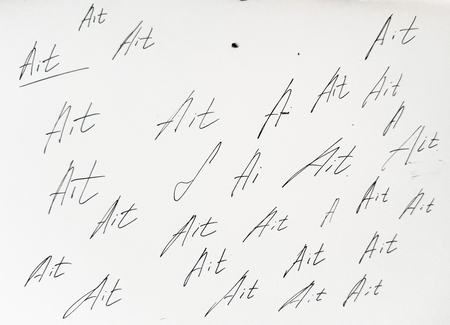 Ait
Ait
Ait
Ait
Ait
Ait
Ait
Ai
Ait
Ait
A
Ait
Ait
Ai
Ait
Ait
Ait
Ait
Ait
A
Ait
Ait
Ait
Ait
Ait
Ait
Ait
Ait
Ait
Ait